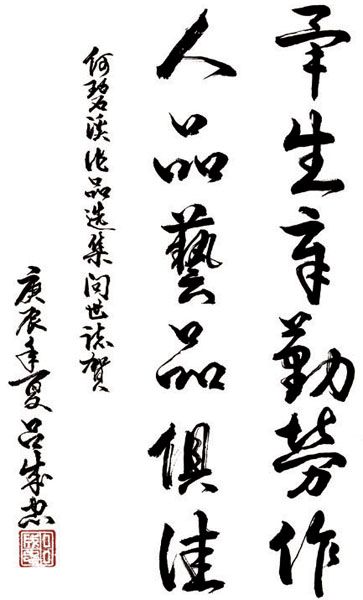 平生辛勤勞作
人品藝品俱佳
何碧溪作品选集问世誌賀
庚辰年夏吕成忠